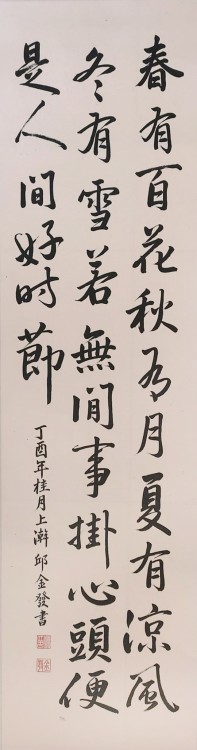 春有百花秋有月夏有涼風
冬有雪若無閒事掛心頭便
是人間好时節
丁酉年桂月上澣邱金發書